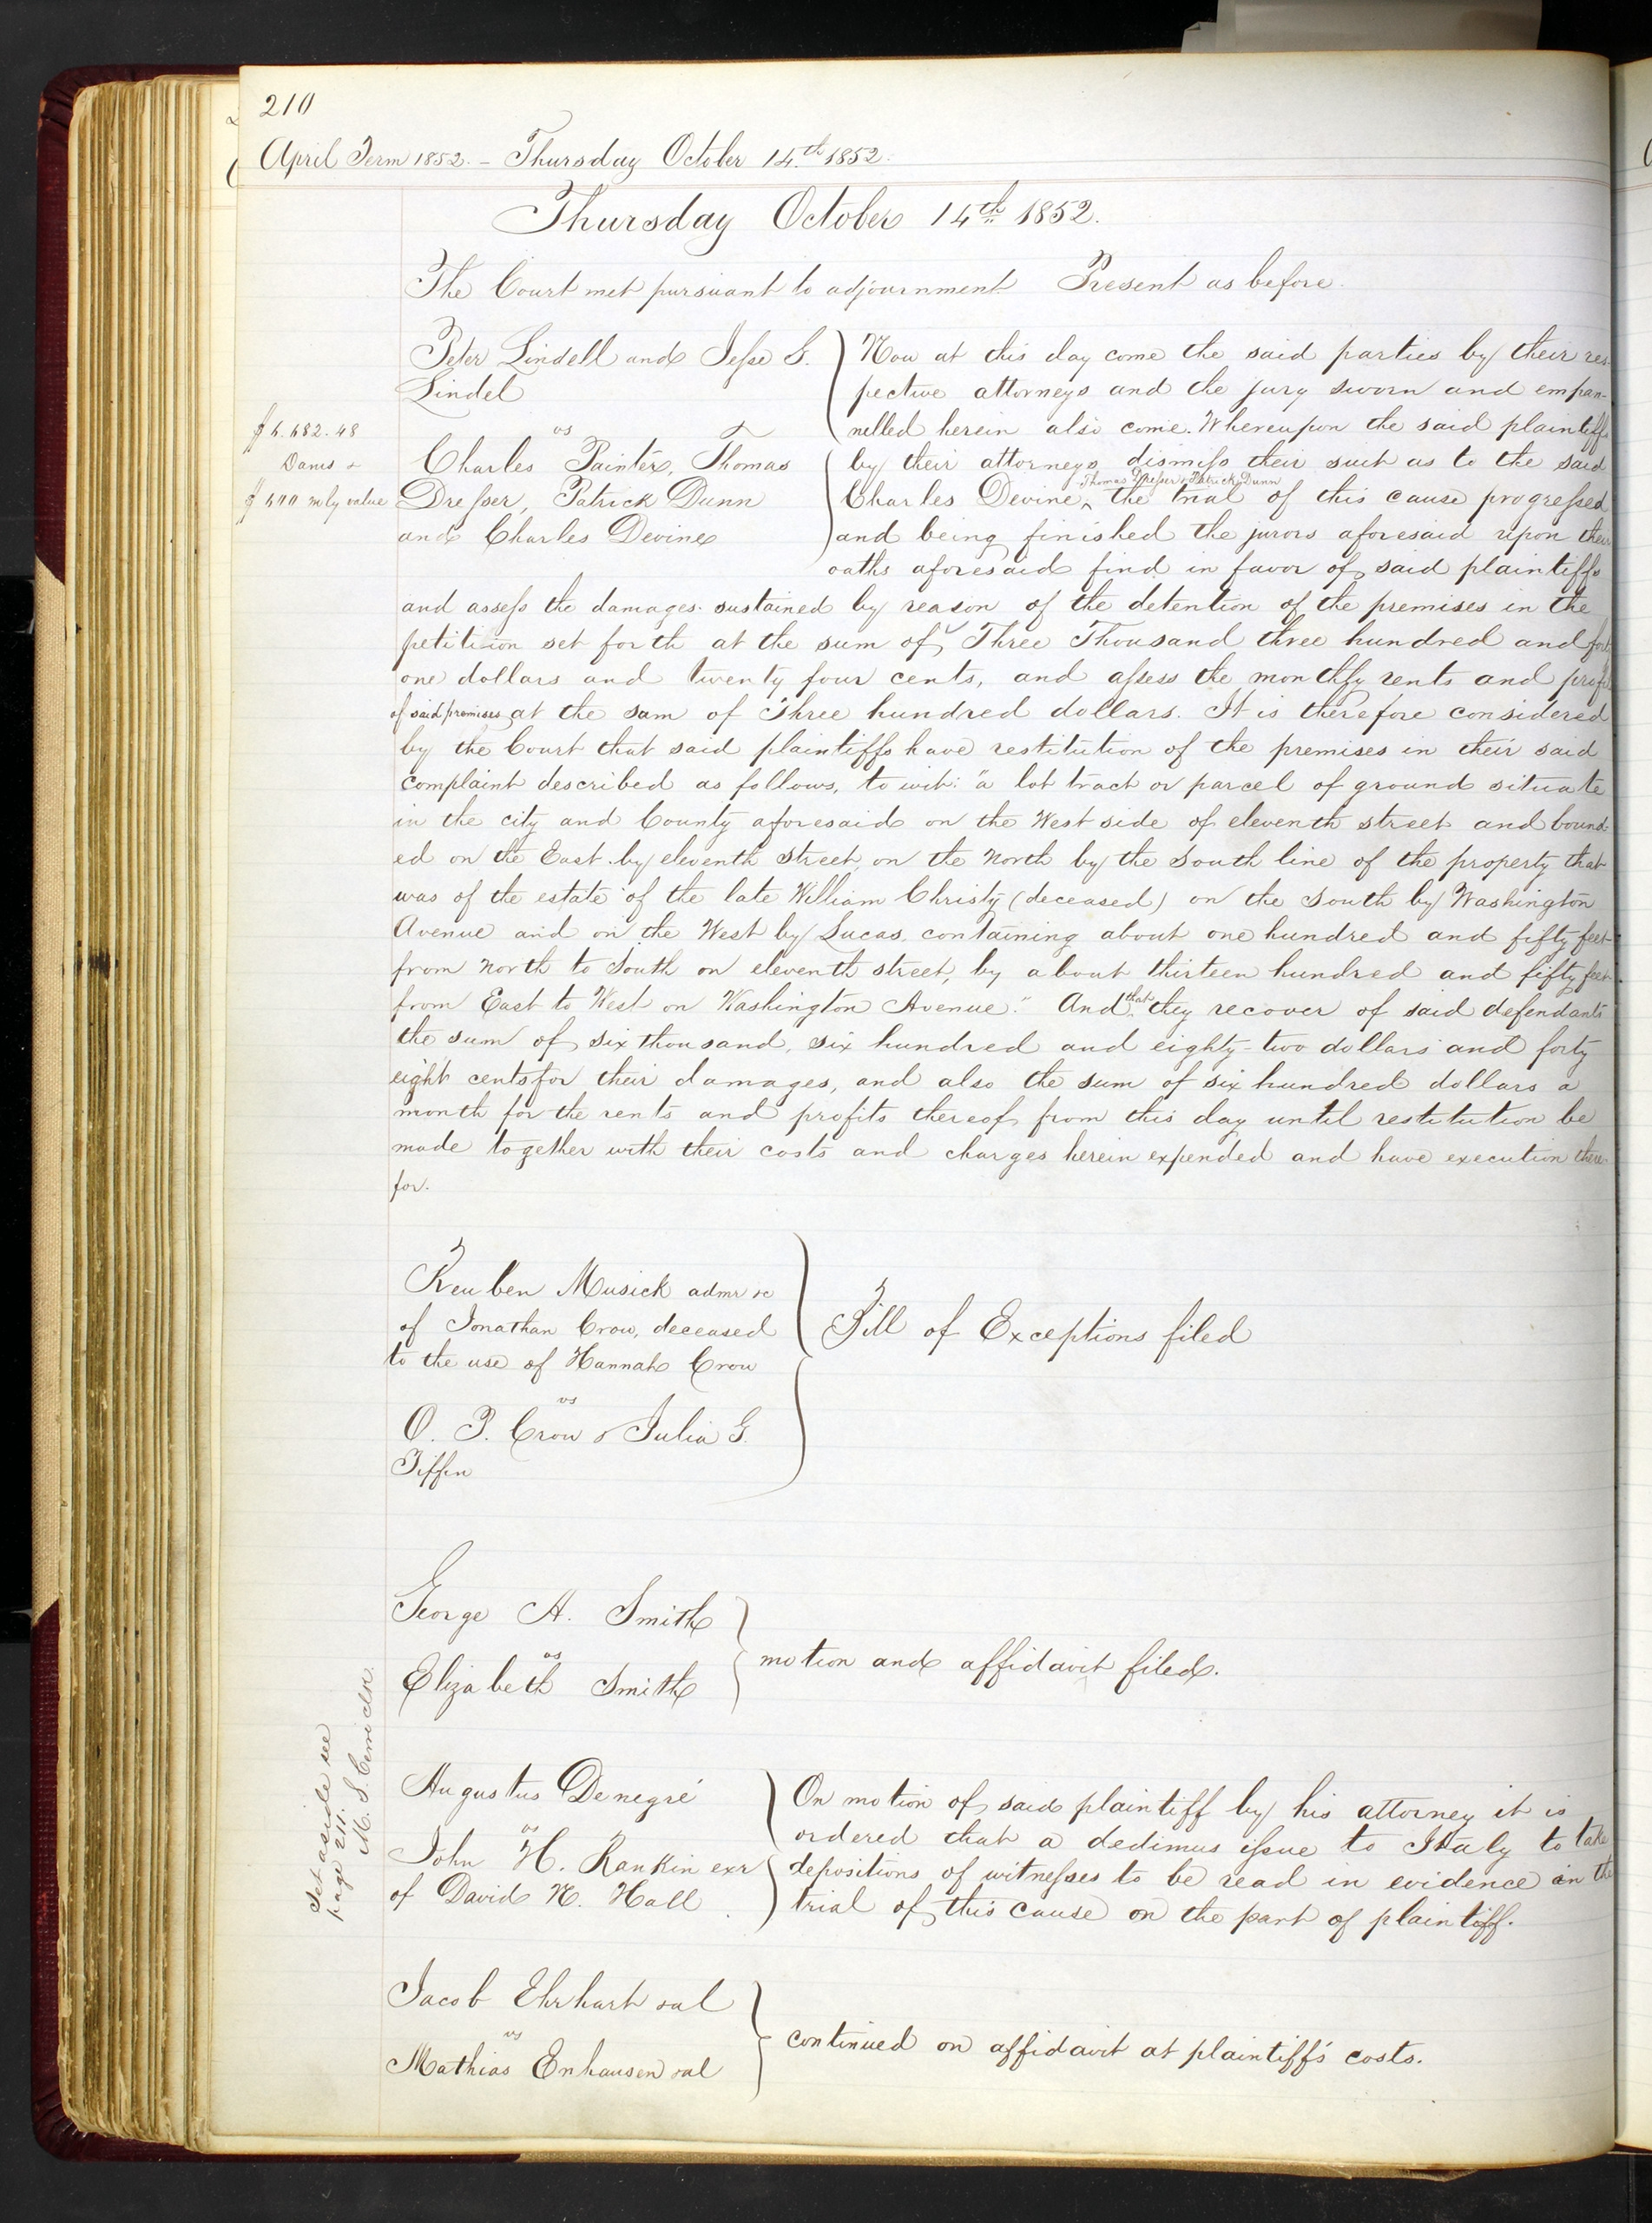 210
April Term 1852. – Thursday October 14th 1852.
Thursday October 14th 1852.
The Court met pursuant to adjournment Present as before.
Peter Lindell and Jesse G.
Lindel
vs
Charles Painter, Thomas
Dresser, Patrick Dunn
and Charles Devine
$6.682.48
Dam &
$600 mly value
Now at this day come the said parties by their res-
pective attorneys and the jury sworn and empan-
nelled herein also come. Whereupon the said plaintiffs
by their attorneys dismiss their suit as to the said
Thomas Dresser & Patrick Dunn
Charles Devine, the trial of this cause progressed
and being finished the jurors aforesaid upon their
oaths aforesaid find in favor of said plaintiffs
and assess the damages sustained by reason of the detention of the premises in the
petition set forth at the sum of Three Thousand three hundred and forty
one dollars and twenty four cents, and assess the monthly rents and profits
of said premises at the sum of Three hundred dollars. It is therefore considered
by the Court that said plaintiffs have restitution of the premises in their said
complaint described as follows, to wit: "a lot tract or parcel of ground situate
in the city and County aforesaid on the West side of eleventh street and bound-
ed on the East by eleventh street, on the North by the South line of the property that
was of the estate of the late William Christy (deceased) on the South by Washington
Avenue and on the West by Lucas, containing about one hundred and fifty feet
from North to South on eleventh street, by about thirteen hundred and fifty feet
from East to West on Washington Avenue." And that they recover of said defendants
the sum of six thousand, six hundred and eighty-two dollars and forty
eight cents for their damages, and also the sum of six hundred dollars a
month for the rents and profits thereof from this day until restitution be
made together with their costs and charges herein expended and have execution there-
for.
Reuben Musick admr &c
of Jonathan Crow, deceased
to the use of Hannah Crow
vs
O. P. Crow & Julia G.
Tiffin
Bill of Exceptions filed
George A. Smith
vs
Elizabeth Smith
motion and affidavit filed.
Set aside see
page 211.
M. S. Cerré clk.
Augustus Denegré
vs
John H. Rankin exr
of David N. Hall
On motion of said plaintiff by his attorney it is
ordered that a dedimus issue to Italy to take
depositions of witnesses to be read in evidence in the
trial of this cause on the part of plaintiff.
Jacob Ehrhart &al
vs
Mathias Enhausen &al
continued on affidavit at plaintiff's costs.